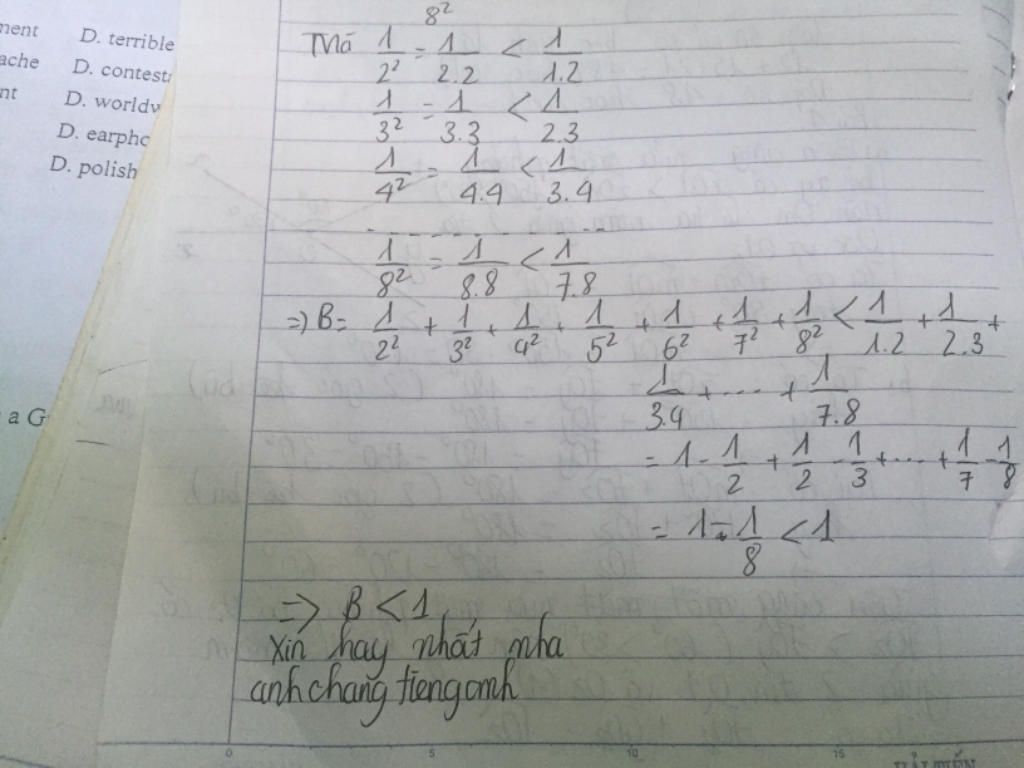 ment D. terrible
ache D. contest
nt D. worldw
D. earpho
D. polish
a G
8²
Mà 1/2² = 1/2.2 < 1/1.2
1/3² = 1/3.3 < 1/2.3
1/4² = 1/4.4 < 1/3.4
- - - - - - - - - -
1/8² = 1/8.8 < 1/7.8
=) B = 1/2² + 1/3² + 1/4² + 1/5² + 1/6² + 1/7² + 1/8² < 1/1.2 + 1/2.3 +
1/3.4 + ... + 1/7.8
= 1 - 1/2 + 1/2 - 1/3 + ... + 1/7 - 1/8
= 1 - 1/8 < 1
=> B < 1
Xin hay nhất nha
anhchangtienganh
0 5 10 15
HẢI TIẾN